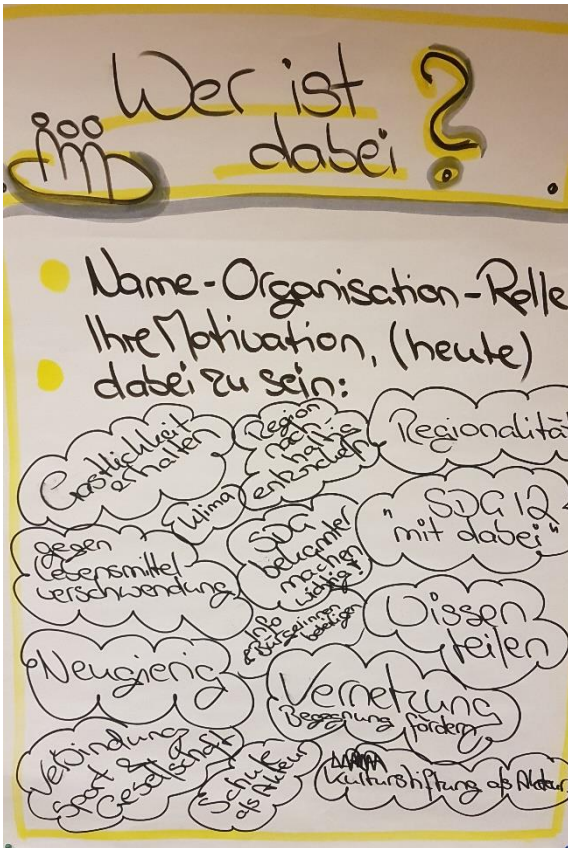 Wer ist
dabei ?
Name-Organisation-Rolle
Ihre Motivation, (heute)
dabei zu sein:
Gastlichkeit
erhalten
Region
nach-
haltig
entwickeln
Regionalität
Klima
gegen
Lebensmittel
verschwendung
SDG
bekannter
machen
wichtig!
"SDG 12
mit dabei"
Info
BürgerInnen
beteiligen
Wissen
teilen
Neugierig
Vernetzung
Begegnung fördern
Verbindung
Sport &
Gesellschaft
Schule
als Akteur
Kulturstiftung als Akteur